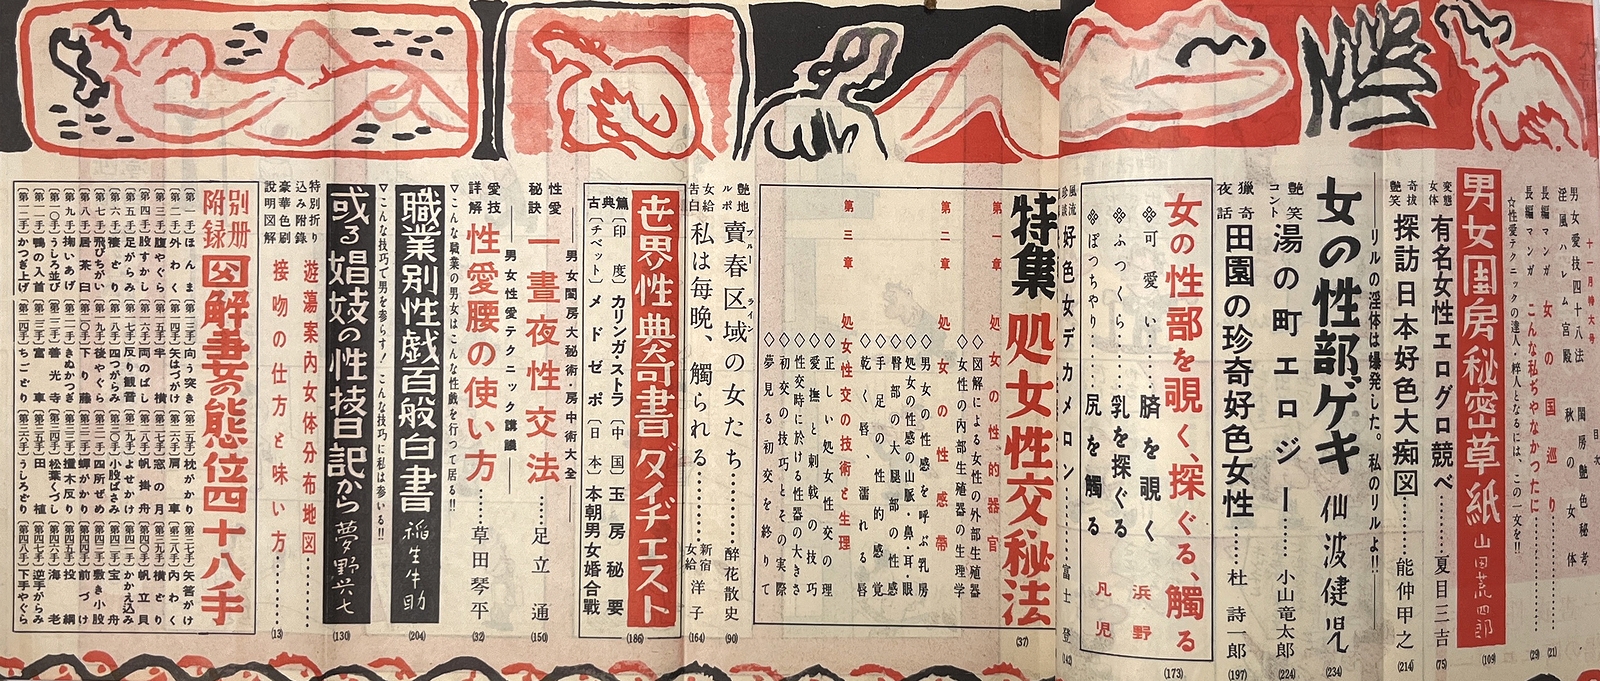 十一月特大号
目次
男女愛技四十八法
閨房艶色秘考
淫風ハレム宮殿
秋の女体
長編マンガ 女の国巡り (21)
長編マンガ こんな私ぢやなかつたに (29)
☆性愛テクニックの達人・粋人となるには、この一文を!!
男女閨房秘密草紙 山田荒四郎 (109)
変態女体 有名女性エログロ競べ……夏目三吉 (75)
奇抜艶笑 探訪日本好色大痴図……能仲甲之 (214)
リルの淫体は爆発した。私のリルよ!!
女の性部ゲキ 仙波健児 (234)
艶笑コント 湯の町エロジー……小山竜太郎 (224)
猟奇夜話 田園の珍奇好色女性……杜詩一郎 (197)
女の性部を覗く、探ぐる、觸る (173)
※可愛い……臍を覗く
※ふつくら……乳を探ぐる
※ぽつちやり……尻を觸る
浜野凡児
風流珍談 好色女デカメロン……富士登 (142)
特集 処女性交秘法 (37)
第一章 処女の性的器官
◇図解による女性の外部生殖器
◇女性の内部生殖器の生理学
第二章 女の性感帯
◇男女の性感を呼ぶ乳房
◇処女の性感の山脈・鼻・耳・眼
◇臀部の大腿部の性感
◇手足の性的感覚
◇乾く唇、濡れる唇
第三章 処女性交の技術と生理
◇正しい処女性交の理
◇愛撫と刺戟の技巧
◇性交時に於ける性器の大きさ
◇初交の技巧とその実際
◇夢見る初交を終りて
艶地ルポ 賣春区域の女たち……醉花散史 (90)
ブルーライン
女給告白 私は毎晩、觸られる……新宿女給 洋子 (164)
世界性典奇書ダイヂエスト (186)
古典篇
〔印度〕カリンガ・ストラ
〔中国〕玉房秘要
〔チベット〕メドゼポ
〔日本〕本朝男女婚合戰
男女閨房大秘術・房中術大全
性愛秘訣 一晝夜性交法……足立通 (150)
男女性愛テクニック講議
愛技詳解 性愛腰の使い方……草田琴平 (32)
▽こんな職業の男女はこんな性戯を行つて居る!!
職業別性戯百般白書 稲生牛助 (204)
▽こんな技巧で男を参らす! こんな技巧に私は参いる!!
或る娼妓の性技日記から 夢野兴七 (130)
特別折り込み附錄
遊蕩案内女体分布地図……
豪華色刷説明図解
接吻の仕方と味い方…… (13)
別册附録 図解妻の態位四十八手
〔第一手〕ほんま
〔第二手〕外わく
〔第三手〕腹やぐら
〔第四手〕股すかし
〔第五手〕足がらみ
〔第六手〕襷どり
〔第七手〕飛びちがい
〔第八手〕居茶臼
〔第九手〕掬いあげ
〔第一〇手〕うしろ並び
〔第一一手〕鴨の入首
〔第一二手〕かつぎ上げ
〔第一三手〕向う突き
〔第一四手〕矢はづけ
〔第一五手〕半横
〔第一六手〕両のばし
〔第一七手〕反り観音
〔第一八手〕四つがらみ
〔第一九手〕後やぐら
〔第二〇手〕下り藤
〔第二一手〕きぬかつぎ
〔第二二手〕善光寺
〔第二三手〕宮車
〔第二四手〕ちごどり
〔第二五手〕枕がかり
〔第二六手〕肩車
〔第二七手〕窓の月
〔第二八手〕帆掛舟
〔第二九手〕よせかけ
〔第三〇手〕小股ばさみ
〔第三一手〕四所ぜめ
〔第三二手〕蟬がかり
〔第三三手〕撞木反り
〔第三四手〕松葉くづし
〔第三五手〕田植
〔第三六手〕うしろどり
〔第三七手〕矢筈がけ
〔第三八手〕内わく
〔第三九手〕横どり
〔第四〇手〕帆立貝
〔第四一手〕かかえ込み
〔第四二手〕宝舟
〔第四三手〕敷き小股
〔第四四手〕前づけ
〔第四五手〕投網
〔第四六手〕海老
〔第四七手〕逆手がらみ
〔第四八手〕下手やぐら